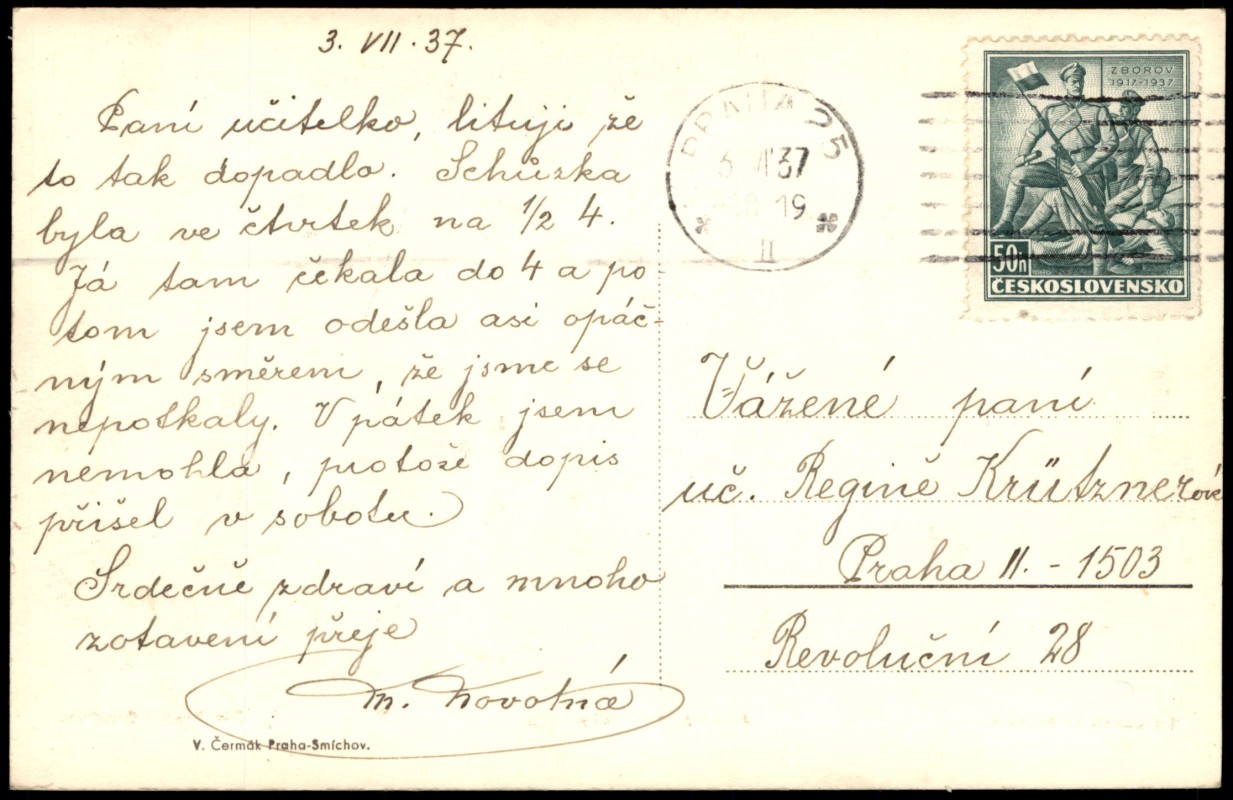 3. VII. 37.
Paní učitelko, lituji že
to tak dopadlo. Schůzka
byla ve čtvrtek na 1/2 4.
Já tam čekala do 4 a po-
tom jsem odešla asi opáč-
ným směrem, že jsme se
nepotkaly. V pátek jsem
nemohla, protože dopis
přišel v sobotu.
Srdečně zdraví a mnoho
zotavení přeje
M. Novotná
V. Čermák Praha-Smíchov.
PRAHA 25
3 VII 37
18 19
II
ZBOROV
1917-1937
50h
ČESKOSLOVENSKO
Vážené paní
uč. Regině Krütznerové
Praha II. - 1503
Revoluční 28